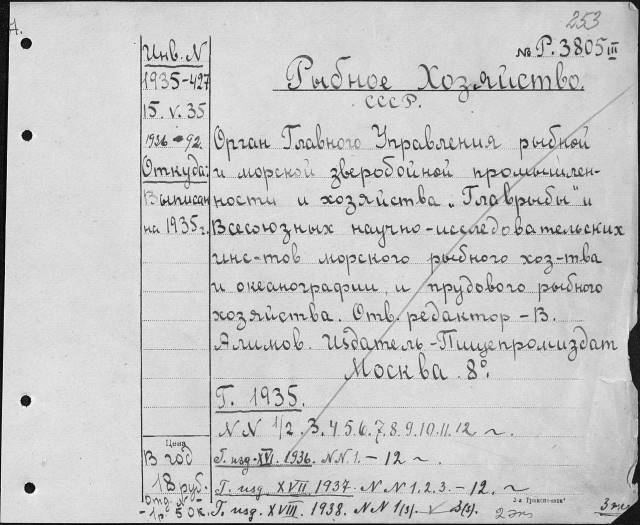 253
№ Р. 3805 III
Инв. N
1935-427
15. V. 35
1936 92.
Откуда:
Выписан
на 1935 г.
Рыбное Хозяйство
СССР.
Орган Главного Управления рыбной
и морской зверобойной промышлен-
ности и хозяйства „Главрыбы" и
Всесоюзных научно-исследовательских
инс-тов морского рыбного хоз-тва
и океанографии и прудового рыбного
хозяйства. Отв. редактор - В.
Алимов. Издатель - Пищепромиздат
Москва. 8°.
Г. 1935.
N N 1/2. 3. 4. 5. 6. 7. 8. 9. 10. 11. 12 ~
Г. изд. XVI. 1936. N N 1. - 12 ~.
Г. изд. XVII. 1937. N N 1. 2. 3. - 12. ~
Г. изд. XVIII. 1938. N N 1(3). 
Цена
В год
18 руб.
отд. №
- 1р. 50 к.
2 экз